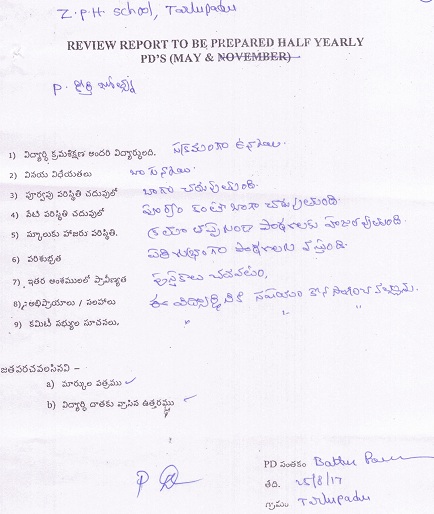 Z.P.H school, Tarlupadu
REVIEW REPORT TO BE PREPARED HALF YEARLY
PD'S (MAY & NOVEMBER)
P.
1) విద్యార్థి క్రమశిక్షణ అందరి విద్యార్థులది. సక్రమంగా ఉన్నాయి.
2) వినయ విధేయతలు బాగున్నాయి.
3) పూర్వపు పరిస్థితి చదువులో బాగా చదువుతుంది.
4) నేటి పరిస్థితి చదువులో పూర్వం కంటే బాగా చదువుతుంది.
5) స్కూలుకు హాజరు పరిస్థితి. క్రమం తప్పకుండా పాఠశాలకు హాజరవుతుంది.
6) పరిశుభ్రత పరిశుభ్రంగా పాఠశాలకు వస్తుంది.
7) ఇతర అంశములలో ప్రావీణ్యత పుస్తకాలు చదవటం.
8) అభిప్రాయాలు / సలహాలు ఈ విద్యార్థినికి సహాయం
9) కమిటీ సభ్యుల సూచనలు. " " "
జతపరచవలసినవి –
a) మార్కుల పత్రము ✓
b) విద్యార్థి దాతకు వ్రాసిన ఉత్తరము ✓
PD సంతకం
తేది. 25/8/17
గ్రామం Tarlupadu